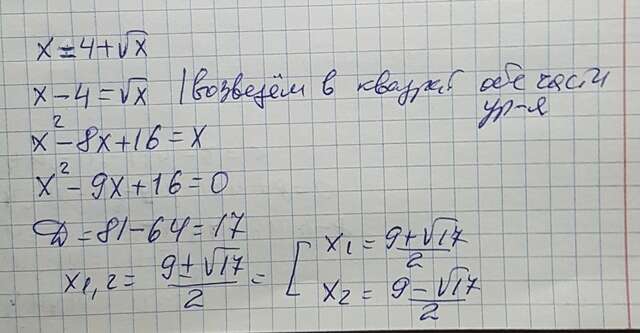 x=4+√x
x-4=√x |возведём в квадрат обе части
ур-я
x²-8x+16=x
x²-9x+16=0
D=81-64=17
x₁,₂= (9±√17)/2 = [ x₁= (9+√17)/2
x₂= (9-√17)/2